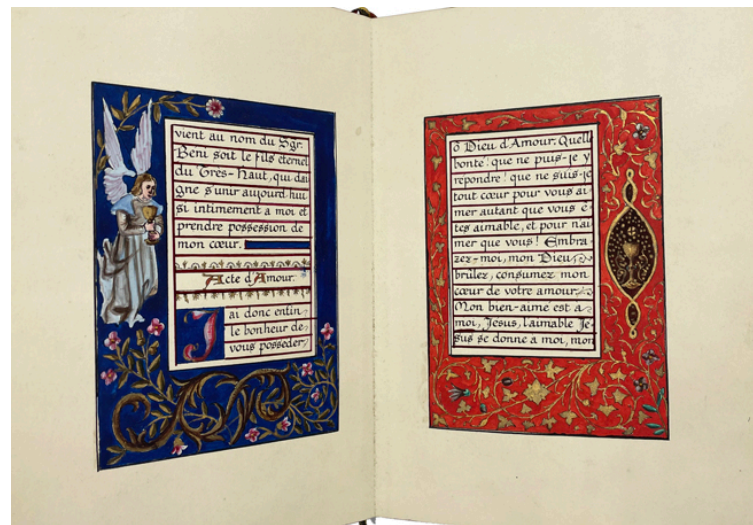 vient au nom du Sgr.
Beni soit le fils éternel
du Très-Haut, qui dai
gne s'unir aujourd'hui
si intimement a moi et
prendre possession de
mon cœur.
Acte d'Amour.
J'ai donc enfin
le bonheur de
vous posseder,
ô Dieu d'Amour. Quelle
bonté! que ne puis-je y
répondre! que ne suis-je
tout cœur pour vous ai
mer autant que vous ê
tes aimable, et pour n'ai
mer que vous! Embra
zez-moi, mon Dieu,
brûlez, consumez mon
cœur de votre amour.
Mon bien-aimé est a
moi, Jesus, l'aimable Je
sus se donne a moi, mon